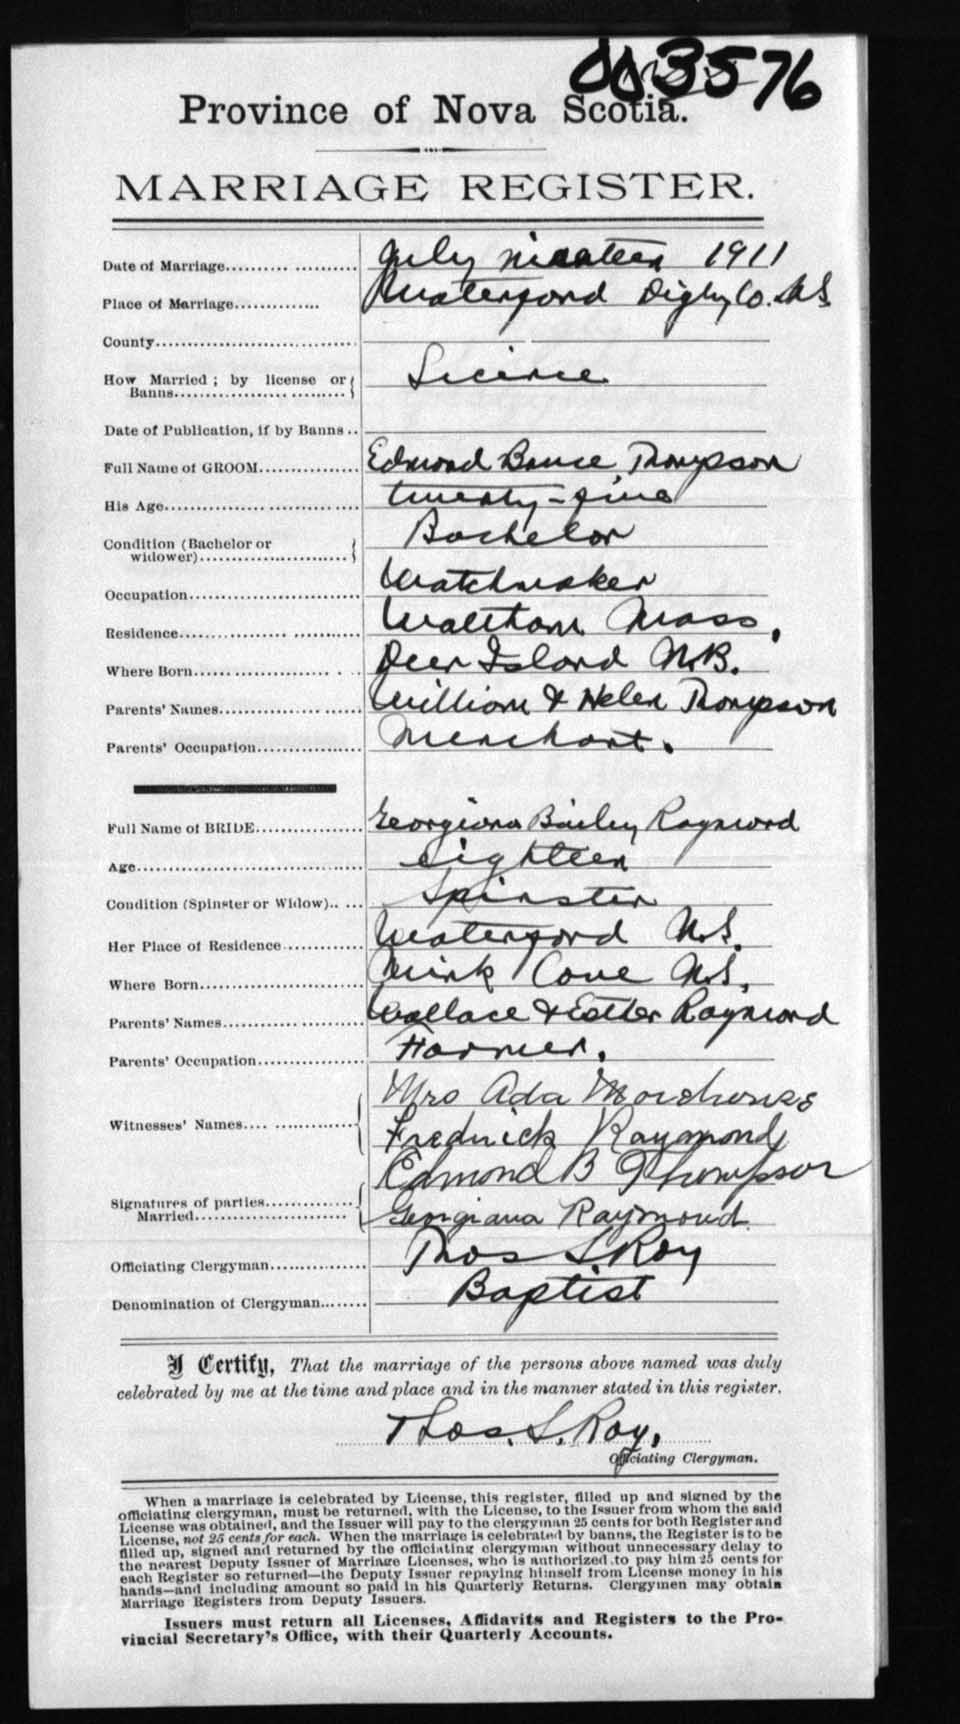 003576
Province of Nova Scotia.
MARRIAGE REGISTER.
Date of Marriage.......... July nineteen 1911
Place of Marriage.............. Waterford Digby Co. N.S.
County..............................
How Married ; by license or Banns.......................... Licence
Date of Publication, if by Banns ..
Full Name of GROOM............... Edmond Bruce Thompson
His Age.............................. twenty-five
Condition (Bachelor or widower)........................ Bachelor
Occupation.......................... Watchmaker
Residence............................ Waltham Mass.
Where Born.......................... Deer Island N.B.
Parents' Names...................... William & Helen Thompson
Parents' Occupation................ Merchant.
Full Name of BRIDE................. Georgiana Bailey Raymond
Age.................................... eighteen
Condition (Spinster or Widow)..... Spinster
Her Place of Residence............. Waterford N.S.
Where Born.......................... Mink Cove N.S.
Parents' Names...................... Wallace & Esther Raymond
Parents' Occupation................ Farmer.
Witnesses' Names.................. Mrs Ada Morehouse
Fredrick Raymond
Signatures of parties Married........................ Edmond B Thompson
Georgiana Raymond
Officiating Clergyman............... Thos S. Roy
Denomination of Clergyman........ Baptist
I Certify, That the marriage of the persons above named was duly
celebrated by me at the time and place and in the manner stated in this register.
Thos. S. Roy,
Officiating Clergyman.
When a marriage is celebrated by License, this register, filled up and signed by the
officiating clergyman, must be returned, with the License, to the Issuer from whom the said
License was obtained, and the Issuer will pay to the clergyman 25 cents for both Register and
License, not 25 cents for each. When the marriage is celebrated by banns, the Register is to be
filled up, signed and returned by the officiating clergyman without unnecessary delay to
the nearest Deputy Issuer of Marriage Licenses, who is authorized to pay him 25 cents for
each Register so returned—the Deputy Issuer repaying himself from License money in his
hands—and including amount so paid in his Quarterly Returns. Clergymen may obtain
Marriage Registers from Deputy Issuers.
Issuers must return all Licenses, Affidavits and Registers to the Pro-
vincial Secretary's Office, with their Quarterly Accounts.